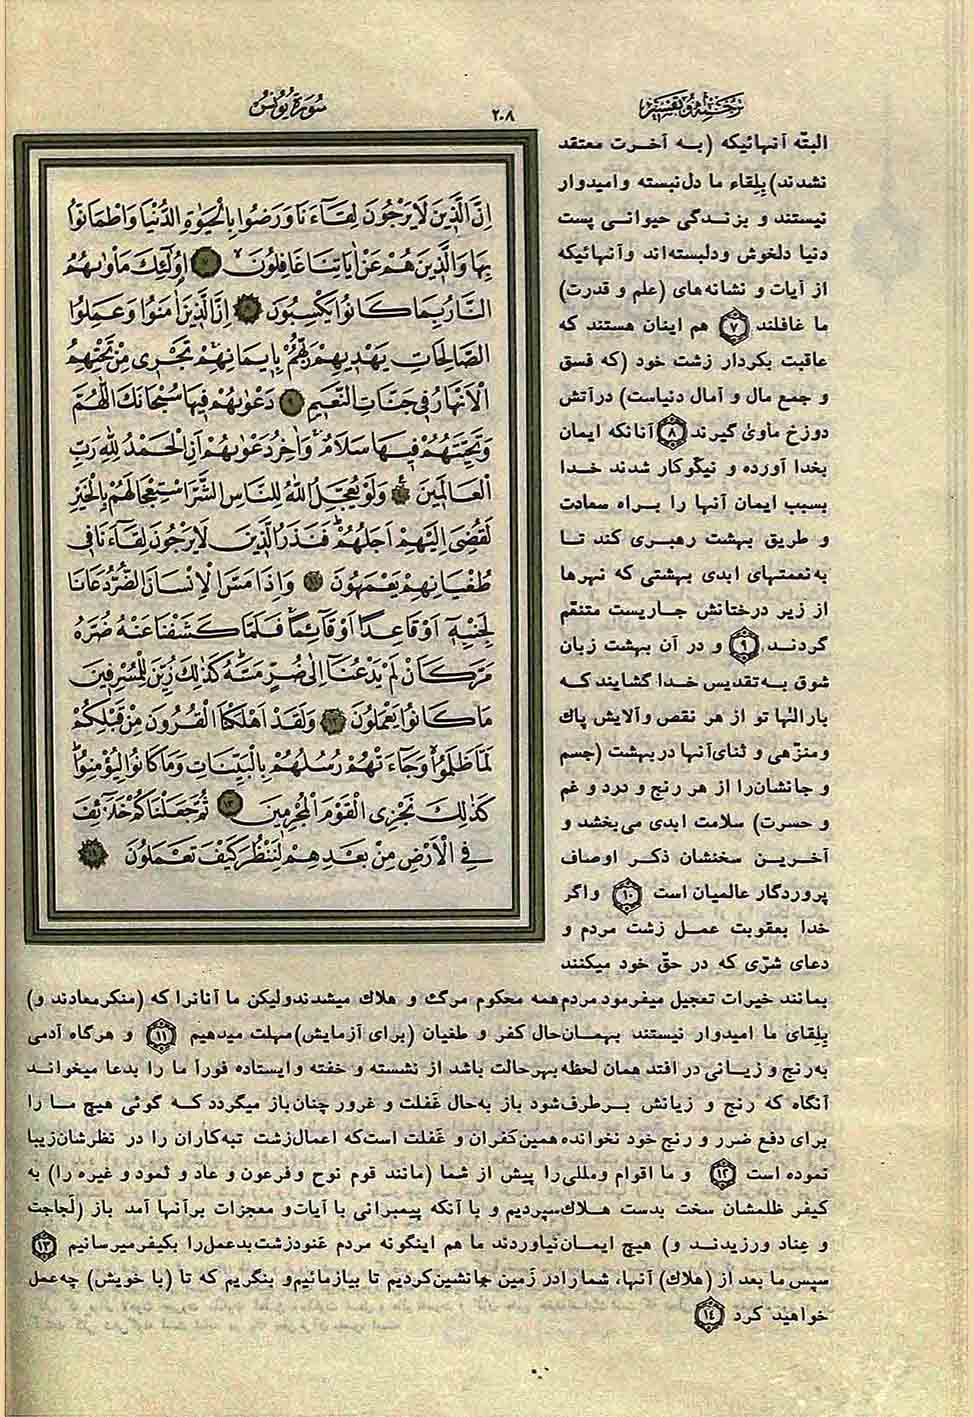 ترجمه و تفسیر
۲۰۸
سورة یونس
اِنَّ الَّذینَ لا یَرْجُونَ لِقآءَنا وَ رَضُوا بِالْحَیٰوةِ الدُّنْیا وَاطْمَاَنّوُا
بِها وَالَّذینَ هُمْ عَنْ ایاتِنا غافِلُونَ ۷ اُولٰٓئِكَ مَاْوٰیهُمُ
النّارُ بِما کانُوا یَکْسِبُونَ ۸ اِنَّ الَّذینَ اٰمَنُوا وَ عَمِلُوا
الصّالِحاتِ یَهْدیهِمْ رَبُّهُمْ بِایمانِهِمْ تَجْری مِنْ تَحْتِهِمُ
الْاَنْهارُ فی جَنّاتِ النَّعیمِ ۹ دَعْوٰیهُمْ فیها سُبْحانَكَ اللّٰهُمَّ
وَ تَحِیَّتُهُمْ فیها سَلامٌ وَ اٰخِرُ دَعْوٰیهُمْ اَنِ الْحَمْدُ لِلّٰهِ رَبِّ
الْعالَمینَ وَلَوْ یُعَجِّلُ اللّٰهُ لِلنّاسِ الشَّرَّ اسْتِعْجالَهُمْ بِالْخَیْرِ
لَقُضِیَ اِلَیْهِمْ اَجَلُهُمْ فَنَذَرُ الَّذینَ لا یَرْجُونَ لِقآءَنا فی
طُغْیانِهِمْ یَعْمَهُونَ ۱۱ وَ اِذا مَسَّ الْاِنْسانَ الضُّرُّ دَعانا
لِجَنْبِهٓ اَوْ قاعِدًا اَوْ قآئِمًا فَلَمّا کَشَفْنا عَنْهُ ضُرَّهُ
مَرَّ کَاَنْ لَمْ یَدْعُنآ اِلٰی ضُرٍّ مَسَّهُ کَذٰلِكَ زُیِّنَ لِلْمُسْرِفینَ
ما کانُوا یَعْمَلُونَ ۱۲ وَلَقَدْ اَهْلَکْنَا الْقُرُونَ مِنْ قَبْلِکُمْ
لَمّا ظَلَمُوا وَ جآءَتْهُمْ رُسُلُهُمْ بِالْبَیِّناتِ وَ ما کانُوا لِیُؤْمِنُوا
کَذٰلِكَ نَجْزِی الْقَوْمَ الْمُجْرِمینَ ۱۳ ثُمَّ جَعَلْناکُمْ خَلآئِفَ
فِی الْاَرْضِ مِنْ بَعْدِهِمْ لِنَنْظُرَ کَیْفَ تَعْمَلُونَ ۱۴
البتّه آنهائیکه (به آخرت معتقد
نشدند) بِلِقاء ما دل نبسته و امیدوار
نیستند و بزندگی حیوانی پست
دنیا دلخوش و دلبسته‌اند و آنهائیکه
از آیات و نشانه‌های (علم و قدرت)
ما غافلند ۷ هم اینان هستند که
عاقبت بکردار زشت خود (که فسق
و جمع مال و آمال دنیاست) در آتش
دوزخ مأویٰ گیرند ۸ آنانکه ایمان
بخدا آورده و نیکوکار شدند خدا
بسبب ایمان آنها را براه سعادت
و طریق بهشت رهبری کند تا
به‌نعمتهای ابدی بهشتی که نهرها
از زیر درختانش جاریست متنعّم
گردند ۹ و در آن بهشت زبان
شوق به‌تقدیس خدا گشایند که
بارالٰها تو از هر نقص و آلایش پاك
و منزّهی و ثنای آنها در بهشت (جسم
و جانشان را از هر رنج و درد و غم
و حسرت) سلامت ابدی می‌بخشد و
آخرین سخنشان ذکر اوصاف
پروردگار عالمیان است ۱۰ و اگر
خدا بعقوبت عمل زشت مردم و
دعای شرّی که در حقّ خود میکنند
بمانند خیرات تعجیل میفرمود مردم همه محکوم مرگ و هلاك میشدند ولیکن ما آنانرا که (منکر معادند و)
بِلِقای ما امیدوار نیستند بهمان حال کفر و طغیان (برای آزمایش) مهلت میدهیم ۱۱ و هرگاه آدمی
به رنج و زیانی در افتد همان لحظه بهر حالت باشد از نشسته و خفته و ایستاده فوراً ما را بدعا میخواند
آنگاه که رنج و زیانش برطرف شود باز به حال غفلت و غرور چنان باز میگردد که گوئی هیچ ما را
برای دفع ضرر و رنج خود نخوانده همین کفران و غفلت است که اعمال زشت تبه‌کاران را در نظرشان زیبا
نموده است ۱۲ و ما اقوام و مللی را پیش از شما (مانند قوم نوح و فرعون و عاد و ثمود و غیره را) به
کیفر ظلمشان سخت بدست هلاك سپردیم و با آنکه پیمبرانی با آیات و معجزات بر آنها آمد باز (لَجاجت
و عِناد ورزیدند و) هیچ ایمان نیاوردند ما هم اینگونه مردم عَنود زشت بدعمل را بکیفر میرسانیم ۱۳
سپس ما بعد از (هلاك) آنها، شما را در زمین جانشین کردیم تا بیازمائیم و بنگریم که تا (با خویش) چه عمل
خواهید کرد ۱۴